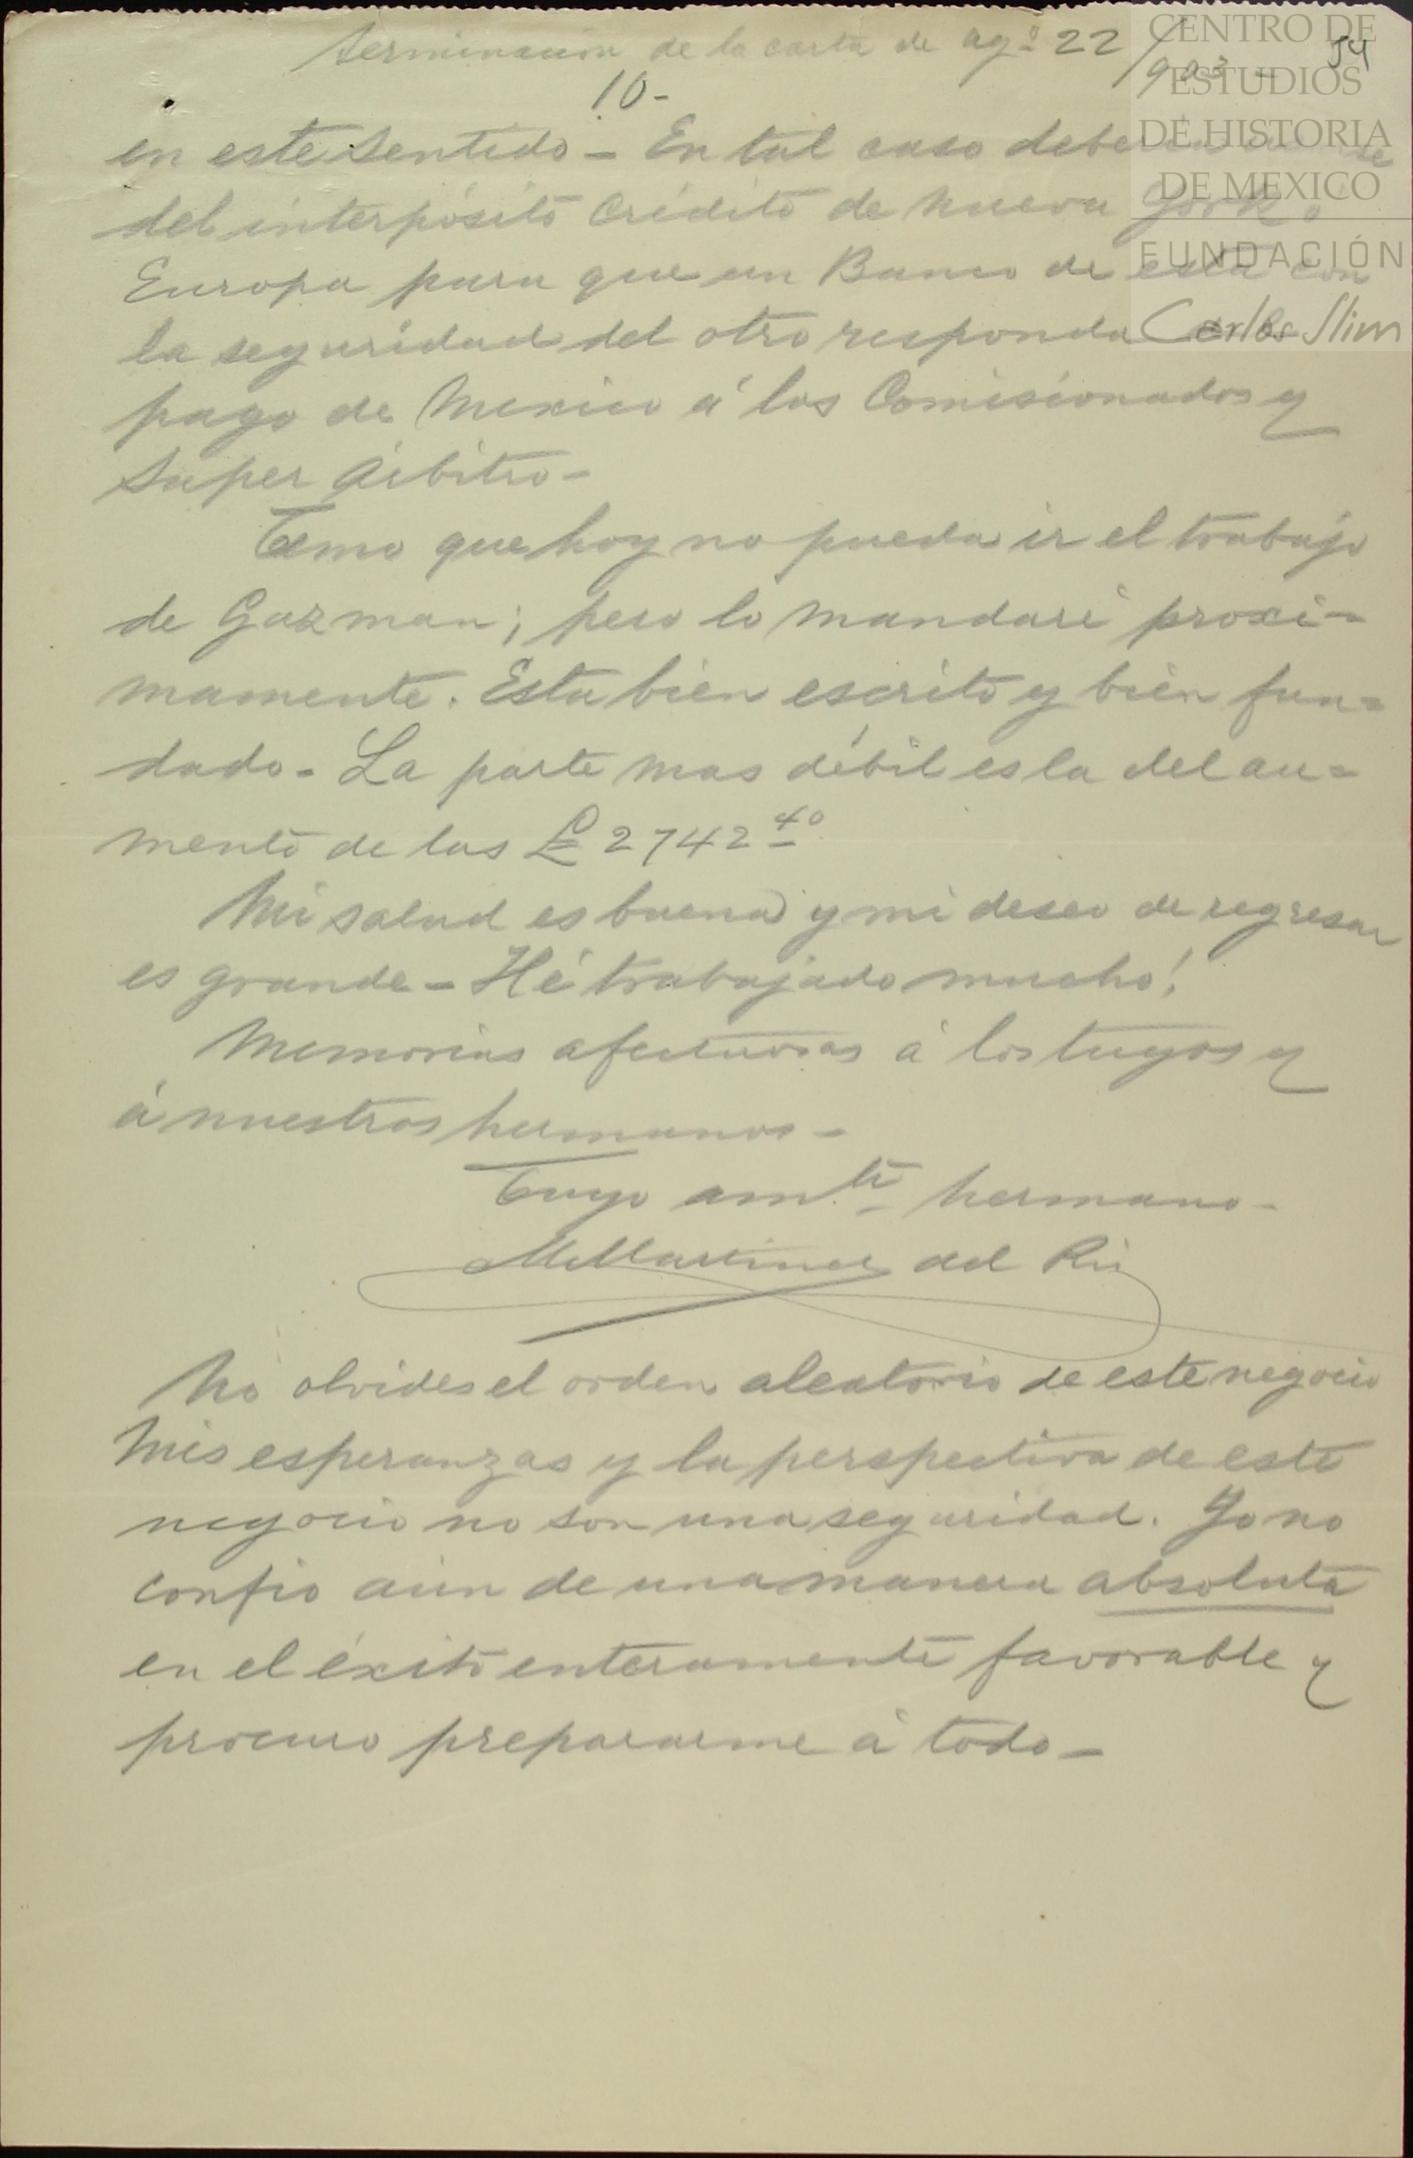 terminacion de la carta de ag.º 22/903 -
54
10-
en este sentido - En tal caso
del interpósito Crédito de Nueva York o
Europa para que un Banco de esta con
la seguridad del otro responda
pago de Mexico á los Comisionados y
Super Arbitro -
Temo que hoy no pueda ir el trabajo
de Guzman; pero lo mandaré proxi-
mamente. Esta bien escrito y bien fun=
dado - La parte mas débil es la del au=
mento de las £ 2742 40
Mi salud es buena y mi deseo de regresar
es grande - Hé trabajado mucho!
Memorias afectuosas á los tuyos y
á nuestros hermanos -
Tuyo am.te hermano -
M Martinez del Rio
No olvides el orden aleatorio de este negocio
Mis esperanzas y la perspectiva de este
negocio no son una seguridad. Yo no
confio aún de una manera absoluta
en el éxito enteramente favorable y
procuro prepararme á todo -
CENTRO DE
ESTUDIOS
DE HISTORIA
DE MEXICO
FUNDACIÓN
Carlos Slim